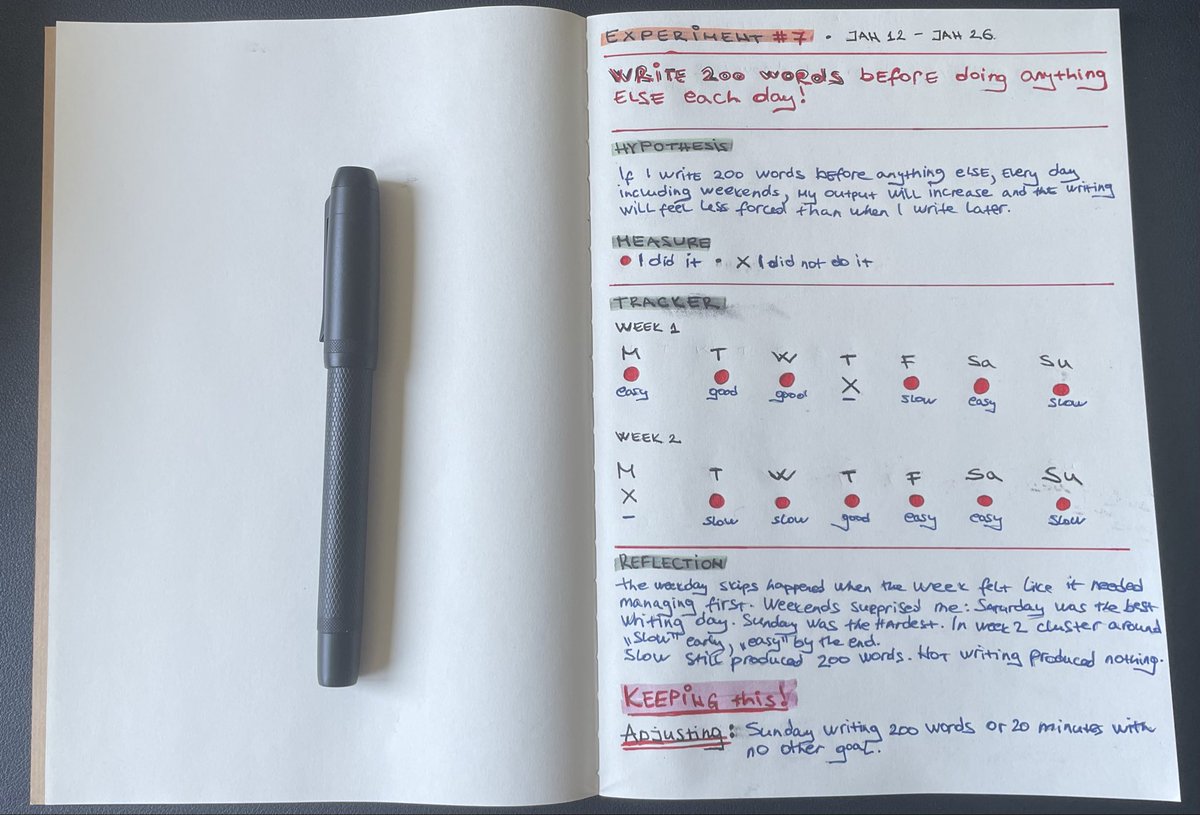 EXPERIMENT #7 • JAN 12 - JAN 26.
WRITE 200 WORDS BEFORE doing anything
ELSE each day!
HYPOTHESIS
If I write 200 words before anything ELSE, EVERY day
including weekends, My output will increase and the writing
will feel less forced than when I write later.
MEASURE
● I did it • X I did not do it
TRACKER
WEEK 1
M T W T F Sa Su
● ● ● X ● ● ●
easy good good – slow easy slow
WEEK 2
M T W T F Sa Su
X ● ● ● ● ● ●
– slow slow good easy easy slow
REFLECTION
The weekday skips happened when the week felt like it needed
managing first. Weekends suprised me: Saturday was the best
writing day. Sunday was the hardest. In week 2 cluster around
„slow" early, „easy" by the end.
Slow still produced 200 words. Not writing produced nothing.
KEEPING this!
Adjusting: Sunday writing 200 words or 20 minutes with
no other goal.